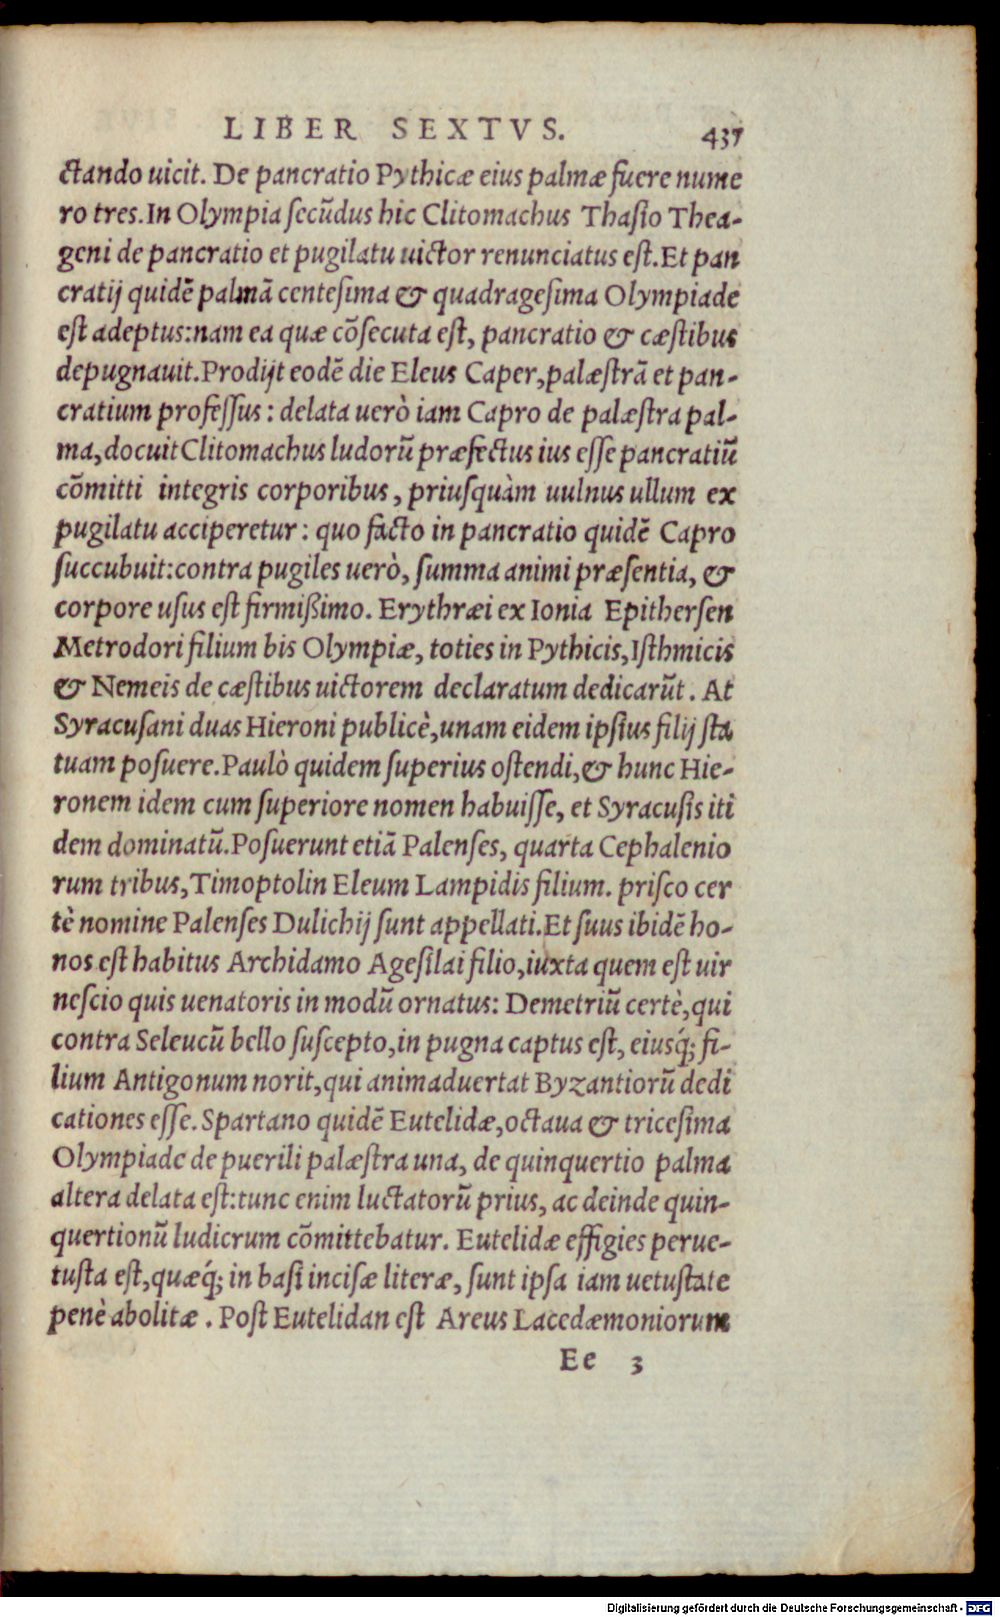 LIBER SEXTVS. 437
ctando uicit. De pancratio Pythicæ eius palmæ fuere nume
ro tres. In Olympia ſecūdus hic Clitomachus Thaſio Thea-
geni de pancratio et pugilatu uictor renunciatus eſt. Et pan
cratij quidē palmā centeſima & quadrageſima Olympiade
eſt adeptus: nam ea quæ cōſecuta eſt, pancratio & cæſtibus
depugnauit. Prodijt eodē die Eleus Caper, palæſtrā et pan-
cratium profeſſus: delata uerò iam Capro de palæſtra pal-
ma, docuit Clitomachus ludorū præfectus ius eſſe pancratiū
cōmitti integris corporibus, priuſquàm uulnus ullum ex
pugilatu acciperetur: quo facto in pancratio quidē Capro
ſuccubuit: contra pugiles uerò, ſumma animi præſentia, &
corpore uſus eſt firmißimo. Erythræi ex Ionia Epitherſen
Metrodori filium bis Olympiæ, toties in Pythicis, Iſthmicis
& Nemeis de cæſtibus uictorem declaratum dedicarūt. At
Syracuſani duas Hieroni publicè, unam eidem ipſius filij ſta
tuam poſuere. Paulò quidem ſuperius oſtendi, & hunc Hie-
ronem idem cum ſuperiore nomen habuiſſe, et Syracuſis iti
dem dominatū. Poſuerunt etiā Palenſes, quarta Cephalenio
rum tribus, Timoptolin Eleum Lampidis filium. priſco cer
tè nomine Palenſes Dulichij ſunt appellati. Et ſuus ibidē ho-
nos eſt habitus Archidamo Ageſilai filio, iuxta quem eſt uir
neſcio quis uenatoris in modū ornatus: Demetriū certè, qui
contra Seleucū bello ſuſcepto, in pugna captus eſt, eiusq́; fi-
lium Antigonum norit, qui animaduertat Byzantiorū dedi
cationes eſſe. Spartano quidē Eutelidæ, octaua & triceſima
Olympiade de puerili palæſtra una, de quinquertio palma
altera delata eſt: tunc enim luctatorū prius, ac deinde quin-
quertionū ludicrum cōmittebatur. Eutelidæ effigies perue-
tuſta eſt, quæq́; in baſi inciſæ literæ, ſunt ipſa iam uetuſtate
penè abolitæ. Poſt Eutelidan eſt Areus Lacedæmoniorum
Ee 3
Digitalisierung gefördert durch die Deutsche Forschungsgemeinschaft - DFG